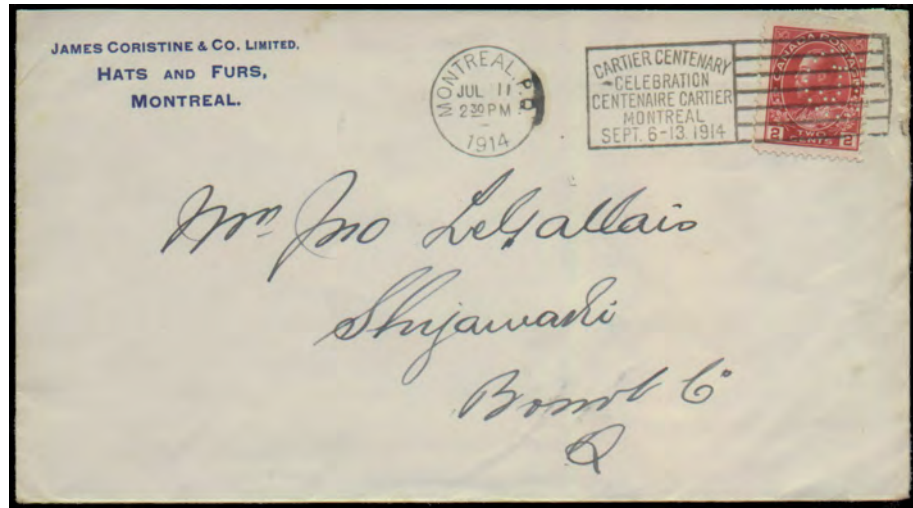 JAMES CORISTINE & CO. LIMITED.
HATS AND FURS,
MONTREAL.
MONTREAL, P.Q.
JUL 11
2 30 PM
1914
CARTIER CENTENARY
CELEBRATION
CENTENAIRE CARTIER
MONTREAL
SEPT. 6-13. 1914
CANADA POSTAGE
2 TWO CENTS 2
Mr Jno LeGallais
Shigawaki
Bonvt Co
Q